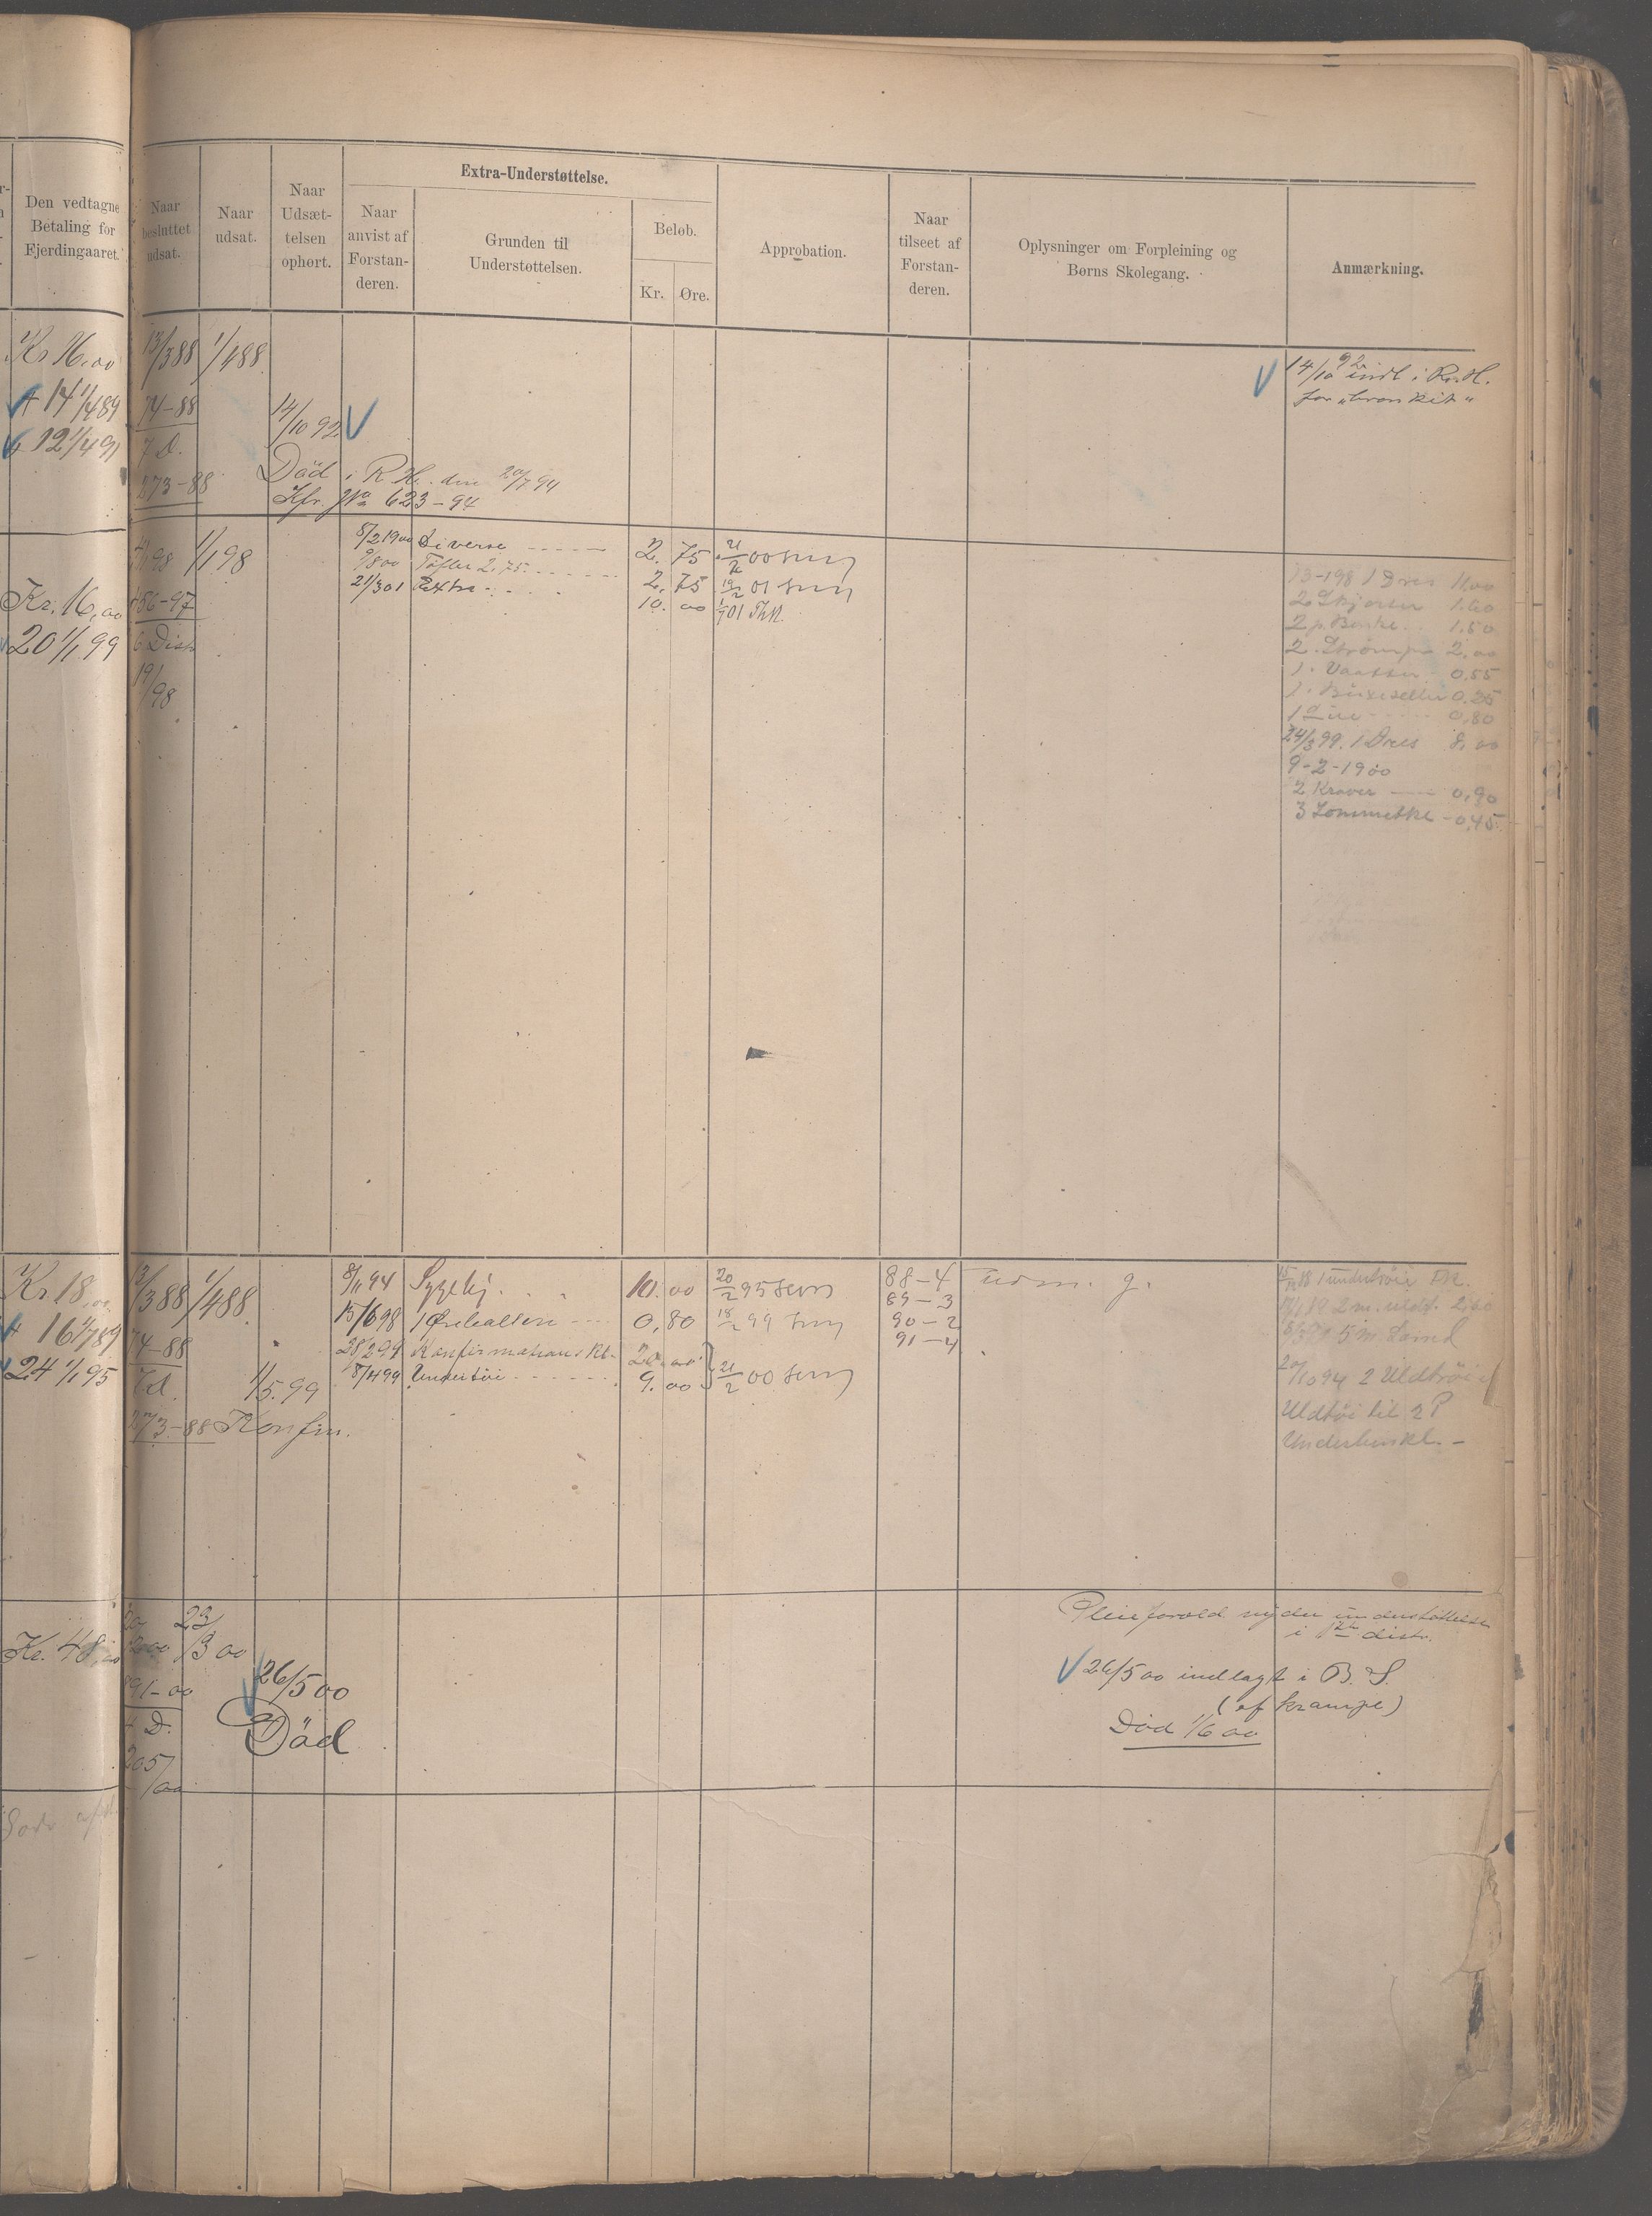 Den vedtagne
Betaling for
Fjerdingaaret.
Naar
besluttet
udsat.
Naar
udsat.
Naar
Udsæt-
telsen
ophørt.
Extra-Understøttelse.
Naar
anvist af
Forstan-
deren.
Grunden til
Understøttelsen.
Beløb.
Kr.
Øre.
Approbation.
Naar
tilseet af
Forstan-
deren.
Oplysninger om Forpleining og
Børns Skolegang.
Anmærkning.
Kr 16,00
+ 14 1/4 89
12 1/4 91
13/3 88
74-88
7 D.
273-88
1/4 88
14/10 92
Död i R. H. den 20/7 94
Kfr. No 623-94
14/10 92 indl i R. H.
for "bronkit"
Kr. 16,00
20 1/1 99
86-97
6 Dist
19/98
1/1 98
8/2 1900 Diverse 2. 75
9/8 00 Töfler 2.75. 2. 75
21/3 01 Extra 10. 00
21/2 00
19/2 01
1/7 01
13-1 98 1 Dres 11.00
2 Skjorter 1.60
2 p. Benkl. 1.50
2. Strömper 2,00
1. Vaatter 0,55
1. Buxeseller 0.25
1 0,80
24/3 99. 1 Dres 8,00
9-2-1900
2 Kraver 0,90
3 Lommetkl - 0,45
Kr 18,00
+ 16 1/7 89
24 1/1 95
13/3 88
74-88
7 d.
273-88
1/4 88.
1/5 99
Konfir.
8/11 94 Sygelej. 10. 00
15/6 98 1 0,80
28/2 99 Konfirmations Kl. 20. 00
8/4 99 Undertöi 9. 00
20/2 95
18/2 99
21/2 00
88-4
89-3
90-2
91-4
udm. g.
20/10 94 2 Uldtröier
Uldtöi til 2 P
Underbenkl. -
Kr. 48,00
23/3 00
91-00
4 D.
2057/00
26/5 00
Död
Pleieforæld nyder understöttelse
i distr.
26/5 00 indlagt i B. S.
(af krampe)
Död 1/6 00